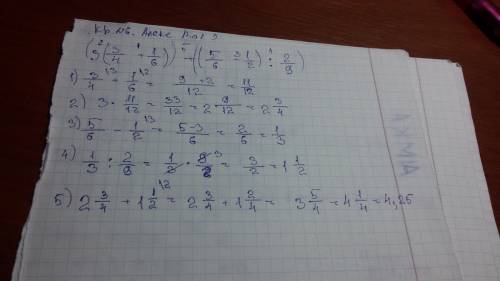 (3(3/4 + 1/6)) + ((5/6 - 1/2) : 2/9)
1) 3/4 + 1/6 = 9+2/12 = 11/12
2) 3 · 11/12 = 33/12 = 2 9/12 = 2 3/4
3) 5/6 - 1/2 = 5-3/6 = 2/6 = 1/3
4) 1/3 : 2/9 = 1/2 · 9/2 = 3/2 = 1 1/2
5) 2 3/4 + 1 1/2 = 2 3/4 + 1 2/4 = 3 5/4 = 4 1/4 = 4,25